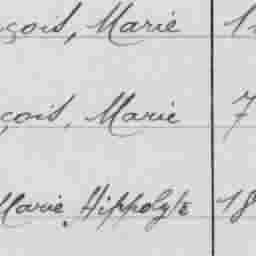 çois, Marie 1
çois, Marie 7
Marie Hippolyte 18